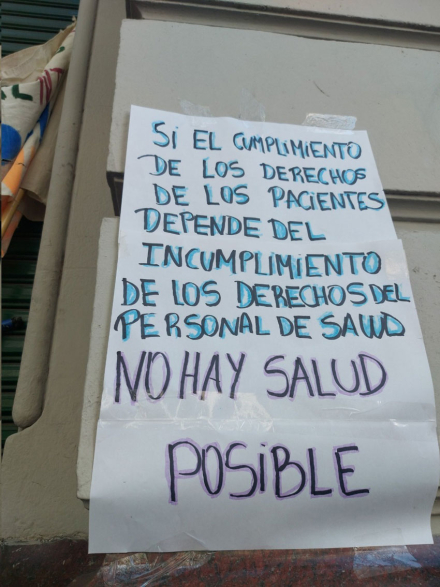 Si EL CUMPLIMIENTO
DE LOS DERECHOS
DE LOS PACIENTES
DEPENDE DEL
INCUMPLIMIENTO
DE LOS DERECHOS DEL
PERSONAL DE SALUD
NO HAY SALUD
POSiBLE